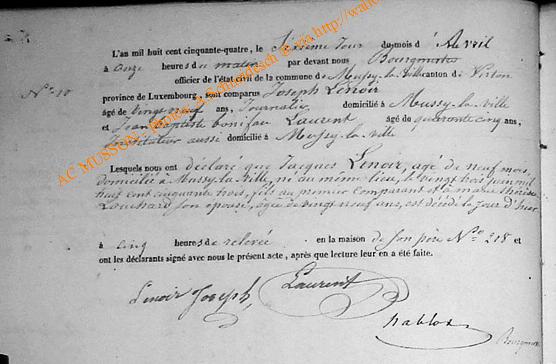 L'an mil huit cent cinquante-quatre, le Sixième Jour du mois d'Avril
à onze heures du matin par devant nous Bourgmestre
officier de l'état civil de la commune de Mussy-la-Ville canton de Virton
N° 10 province de Luxembourg, sont comparus Joseph Lenoir
âgé de vingt neuf ans, Journalier domicilié à Mussy-la-Ville
et Jean Baptiste Laurent âgé de quarante cinq ans,
Instituteur aussi domicilié à Mussy-la-ville
Lesquels nous ont déclaré que Jacques Lenoir, âgé de neuf mois,
domicilié à Mussy-la-Ville, né au même lieu, le vingt trois juin mil
huit cent cinquante trois, fils du premier comparant et de Marie Thérèse
Louchard son épouse, agée de vingt neuf ans, est décédé le jour d'hier
à cinq heures de relevée en la maison de son père N° 218 et
ont les déclarants signé avec nous le présent acte, après que lecture leur en a été faite.
Lenoir Joseph, Laurent
Bourgmestre
AC MUSSON: Photos A. Schmidesch @ via http://